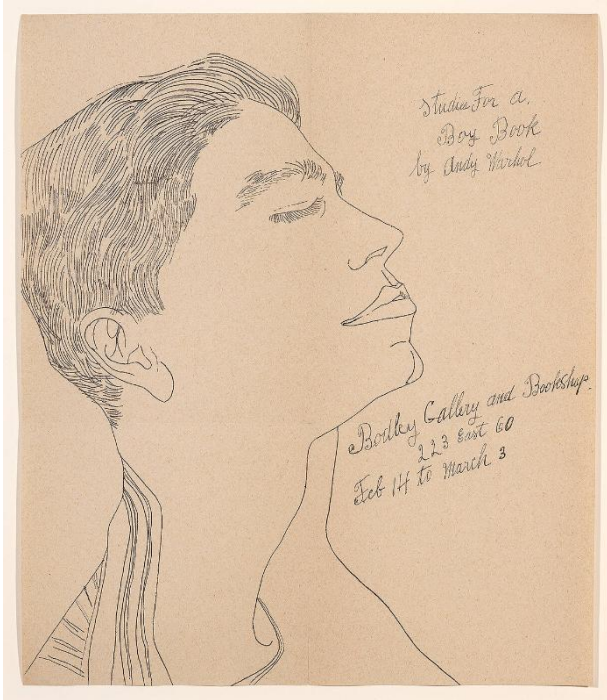 Studies For a.
Boy Book
by Andy Warhol
Bodley Gallery and Bookshop.
223 East 60
Feb 14 to March 3